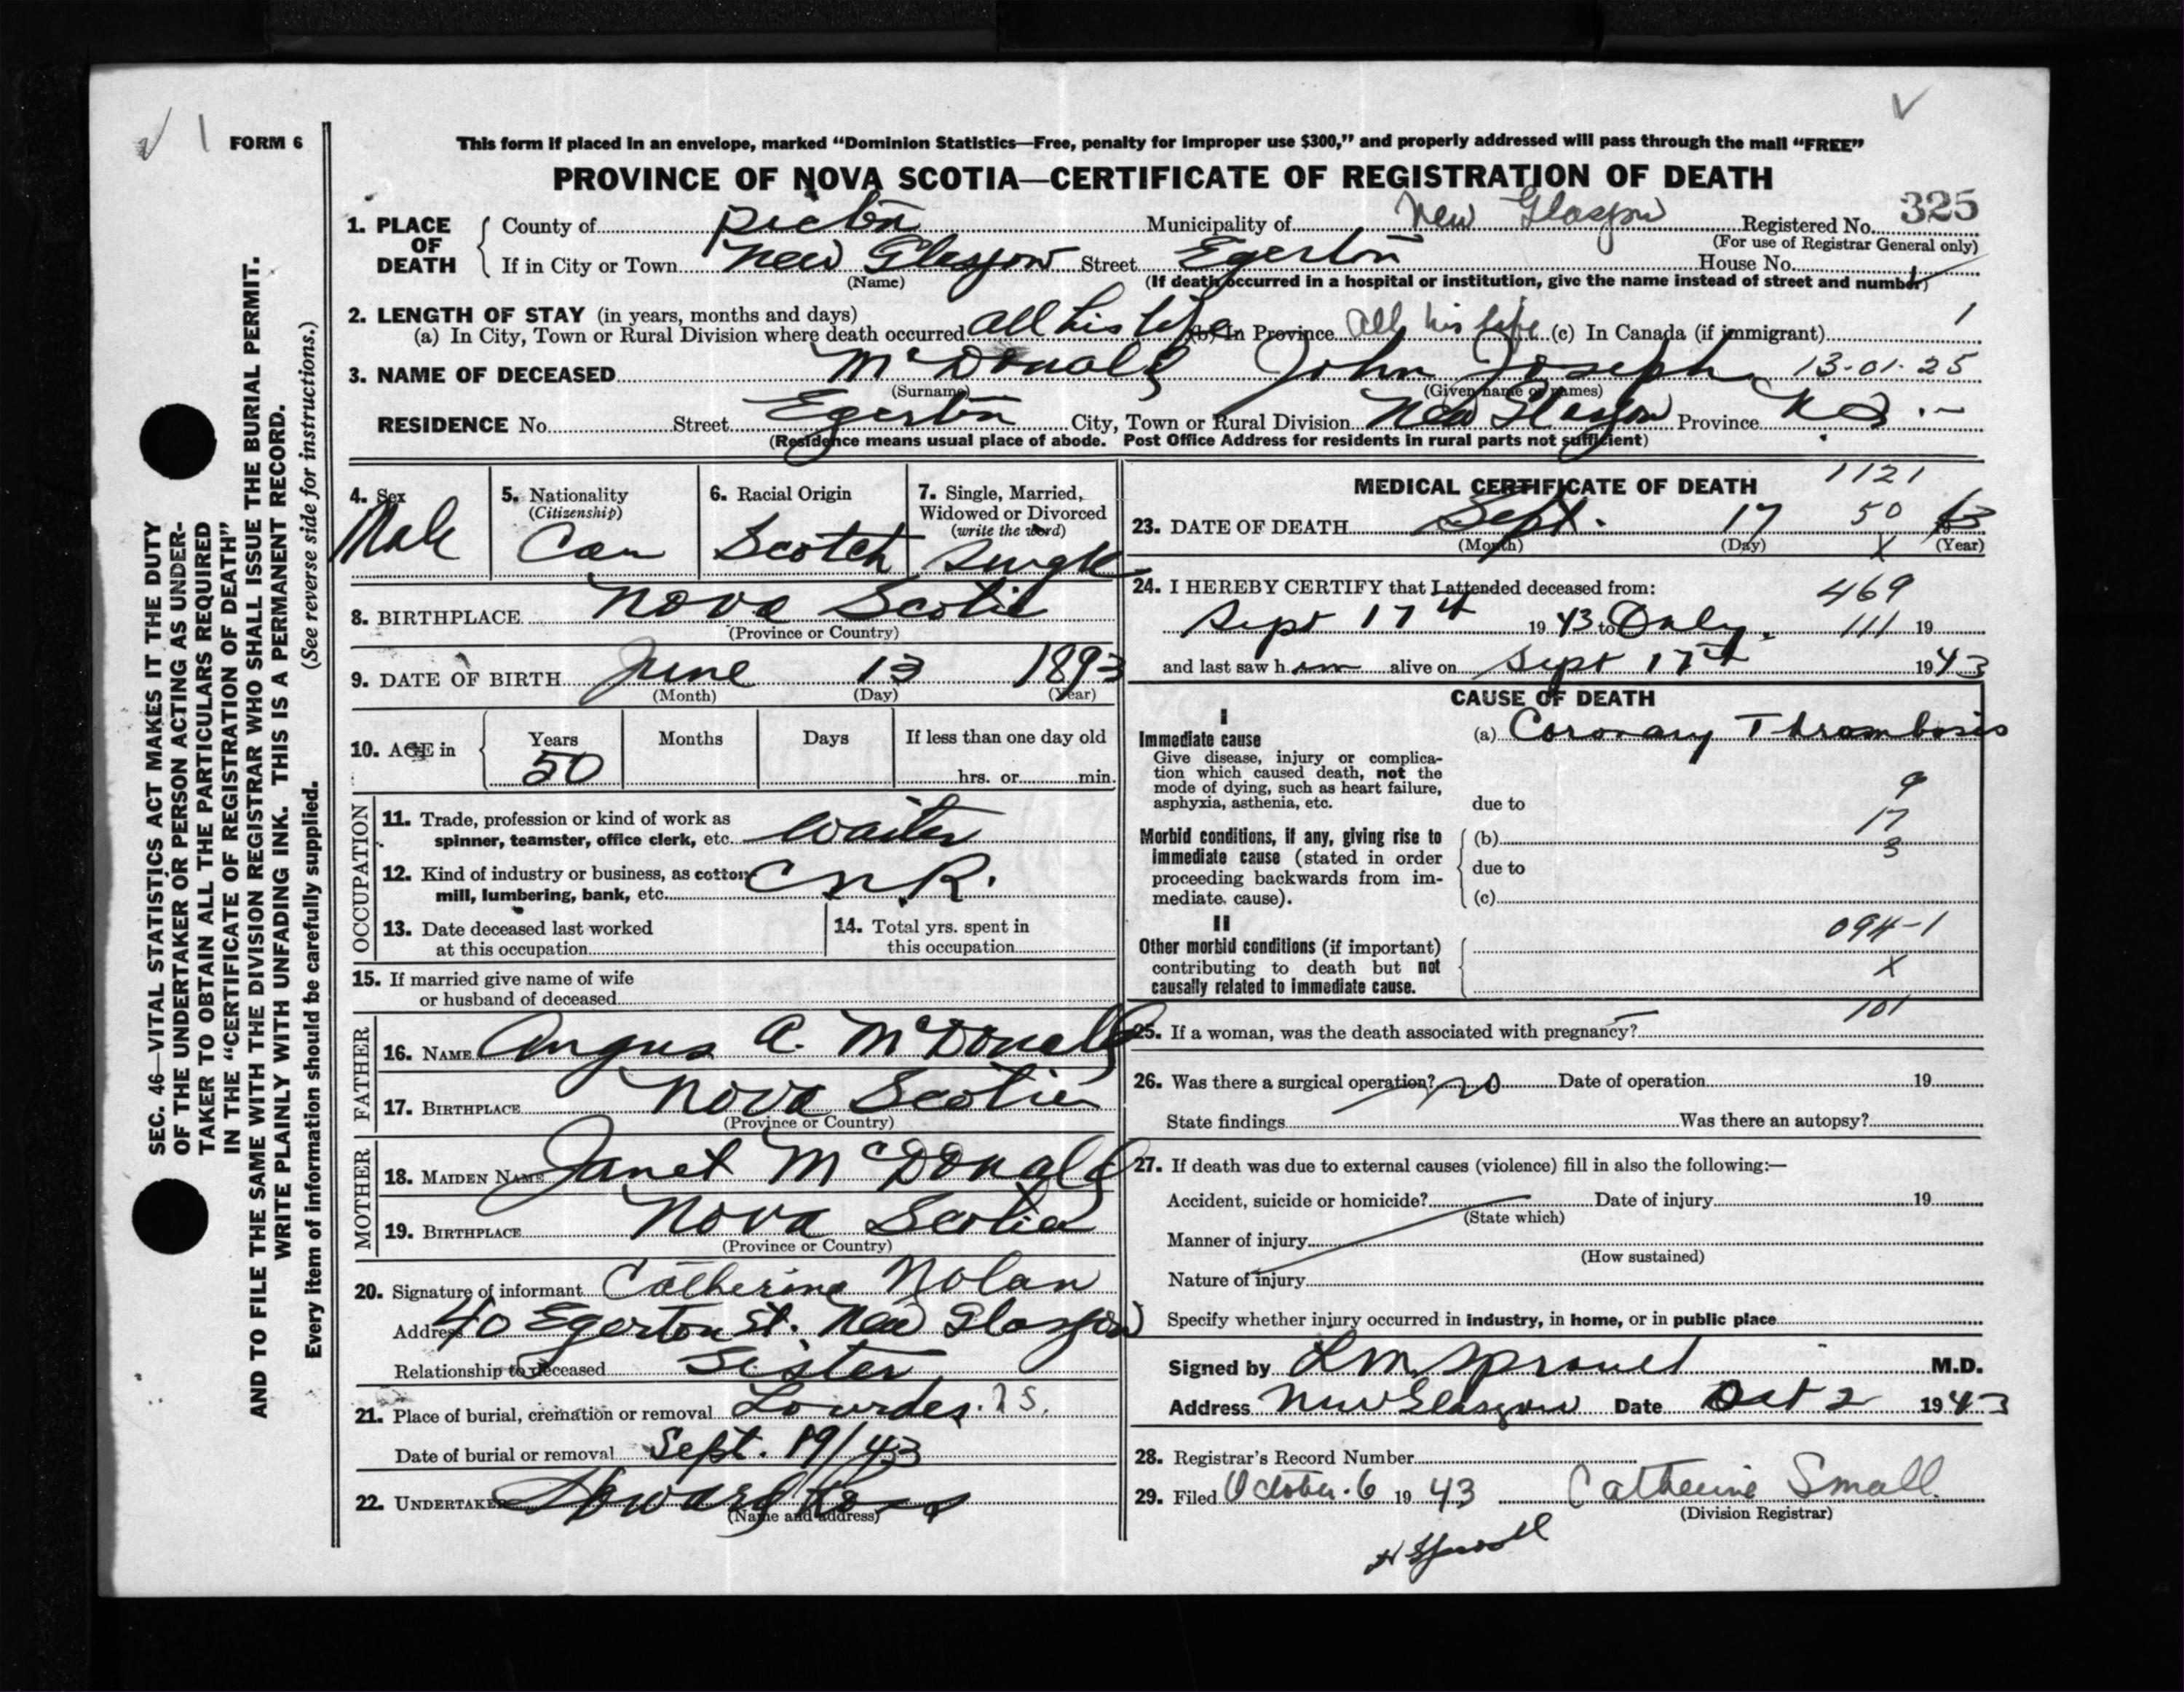 FORM 6
This form if placed in an envelope, marked “Dominion Statistics—Free, penalty for improper use $300,” and properly addressed will pass through the mail “FREE”
PROVINCE OF NOVA SCOTIA—CERTIFICATE OF REGISTRATION OF DEATH
325
1. PLACE OF DEATH
County of Pictou Municipality of New Glasgow Registered No.
(For use of Registrar General only)
If in City or Town New Glasgow Street Egerton House No.
(Name) (If death occurred in a hospital or institution, give the name instead of street and number)
2. LENGTH OF STAY (in years, months and days)
(a) In City, Town or Rural Division where death occurred all his life (b) In Province all his life (c) In Canada (if immigrant) 1
3. NAME OF DECEASED McDonald John Joseph 13-01-25
(Surname) (Given name or names)
RESIDENCE No. Street Egerton City, Town or Rural Division New Glasgow Province N S
(Residence means usual place of abode. Post Office Address for residents in rural parts not sufficient)
4. Sex
Male
5. Nationality
(Citizenship)
Can
6. Racial Origin
Scotch
7. Single, Married,
Widowed or Divorced
(write the word)
Single
8. BIRTHPLACE Nova Scotia
(Province or Country)
9. DATE OF BIRTH June 13 1893
(Month) (Day) (Year)
10. AGE in Years Months Days If less than one day old
50
hrs. or min.
OCCUPATION
11. Trade, profession or kind of work as
spinner, teamster, office clerk, etc. waiter
12. Kind of industry or business, as cotton
mill, lumbering, bank, etc. C.N.R.
13. Date deceased last worked
at this occupation
14. Total yrs. spent in
this occupation
15. If married give name of wife
or husband of deceased
FATHER
16. NAME Angus A. McDonald
17. BIRTHPLACE Nova Scotia
(Province or Country)
MOTHER
18. MAIDEN NAME Janet McDonald
19. BIRTHPLACE Nova Scotia
(Province or Country)
20. Signature of informant Catherine Nolan
Address 40 Egerton St. New Glasgow
Relationship to deceased Sister
21. Place of burial, cremation or removal Lourdes
Date of burial or removal Sept. 19/43
22. UNDERTAKER Howard Ross
(Name and address)
MEDICAL CERTIFICATE OF DEATH
1121
23. DATE OF DEATH Sept. 17 50
(Month) (Day) X (Year)
24. I HEREBY CERTIFY that I attended deceased from:
469
Sept 17th 1943 to Only. 111 19
and last saw him alive on Sept 17th 1943
CAUSE OF DEATH
I
Immediate cause
Give disease, injury or complica-
tion which caused death, not the
mode of dying, such as heart failure,
asphyxia, asthenia, etc.
(a) Coronary Thrombosis
9
due to
17
Morbid conditions, if any, giving rise to
immediate cause (stated in order
proceeding backwards from im-
mediate cause).
(b)
3
due to
(c)
II
Other morbid conditions (if important)
contributing to death but not
causally related to immediate cause.
094-1
X
101
25. If a woman, was the death associated with pregnancy?
26. Was there a surgical operation? no Date of operation 19
State findings Was there an autopsy?
27. If death was due to external causes (violence) fill in also the following:—
Accident, suicide or homicide? Date of injury 19
(State which)
Manner of injury
(How sustained)
Nature of injury
Specify whether injury occurred in industry, in home, or in public place
Signed by M.D.
Address New Glasgow Date Oct 2 1943
28. Registrar's Record Number
29. Filed October 6 1943 Catherine Small
(Division Registrar)
SEC. 46—VITAL STATISTICS ACT MAKES IT THE DUTY
OF THE UNDERTAKER OR PERSON ACTING AS UNDER-
TAKER TO OBTAIN ALL THE PARTICULARS REQUIRED
IN THE “CERTIFICATE OF REGISTRATION OF DEATH”
AND TO FILE THE SAME WITH THE DIVISION REGISTRAR WHO SHALL ISSUE THE BURIAL PERMIT.
WRITE PLAINLY WITH UNFADING INK. THIS IS A PERMANENT RECORD.
Every item of information should be carefully supplied. (See reverse side for instructions.)